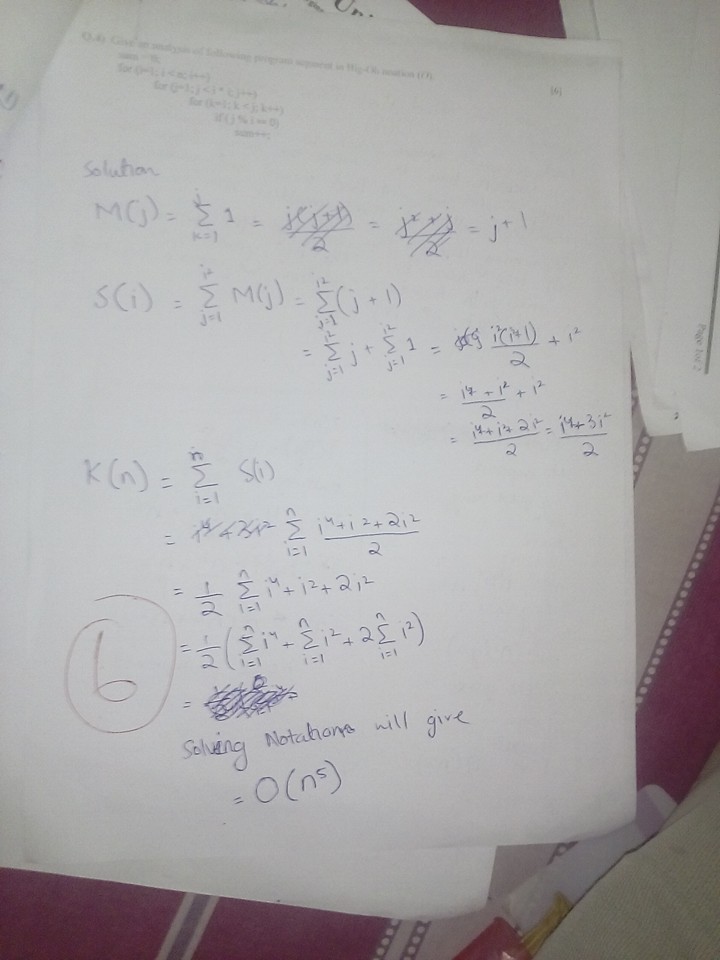 Un.
Q.4) Give an analysis of following program segment in Big-Oh notation (O)
[6]
sum = 0;
for (i=1; i < n; i++)
for (j=1; j < i * i; j++)
for (k=1; k < j; k++)
if (j % i == 0)
sum++;
Solution
M(j) = Σ_{k=1}^{j} 1 = j(j+1)/2 = j²+j/2 = j+1
S(i) = Σ_{j=1}^{i²} M(j) = Σ_{j=1}^{i²} (j + 1)
= Σ_{j=1}^{i²} j + Σ_{j=1}^{i²} 1 = i²(i²+1)/2 + i²
= i⁴ + i²/2 + i²
= i⁴ + i² + 2i²/2 = i⁴+3i²/2
K(n) = Σ_{i=1}^{n} S(i)
= Σ_{i=1}^{n} i⁴+i²+2i²/2
= 1/2 Σ_{i=1}^{n} i⁴ + i² + 2i²
= 1/2 (Σ_{i=1}^{n} i⁴ + Σ_{i=1}^{n} i² + 2Σ_{i=1}^{n} i²)
=
6
Solving Notations will give
= O(n⁵)
Page 1 of 2